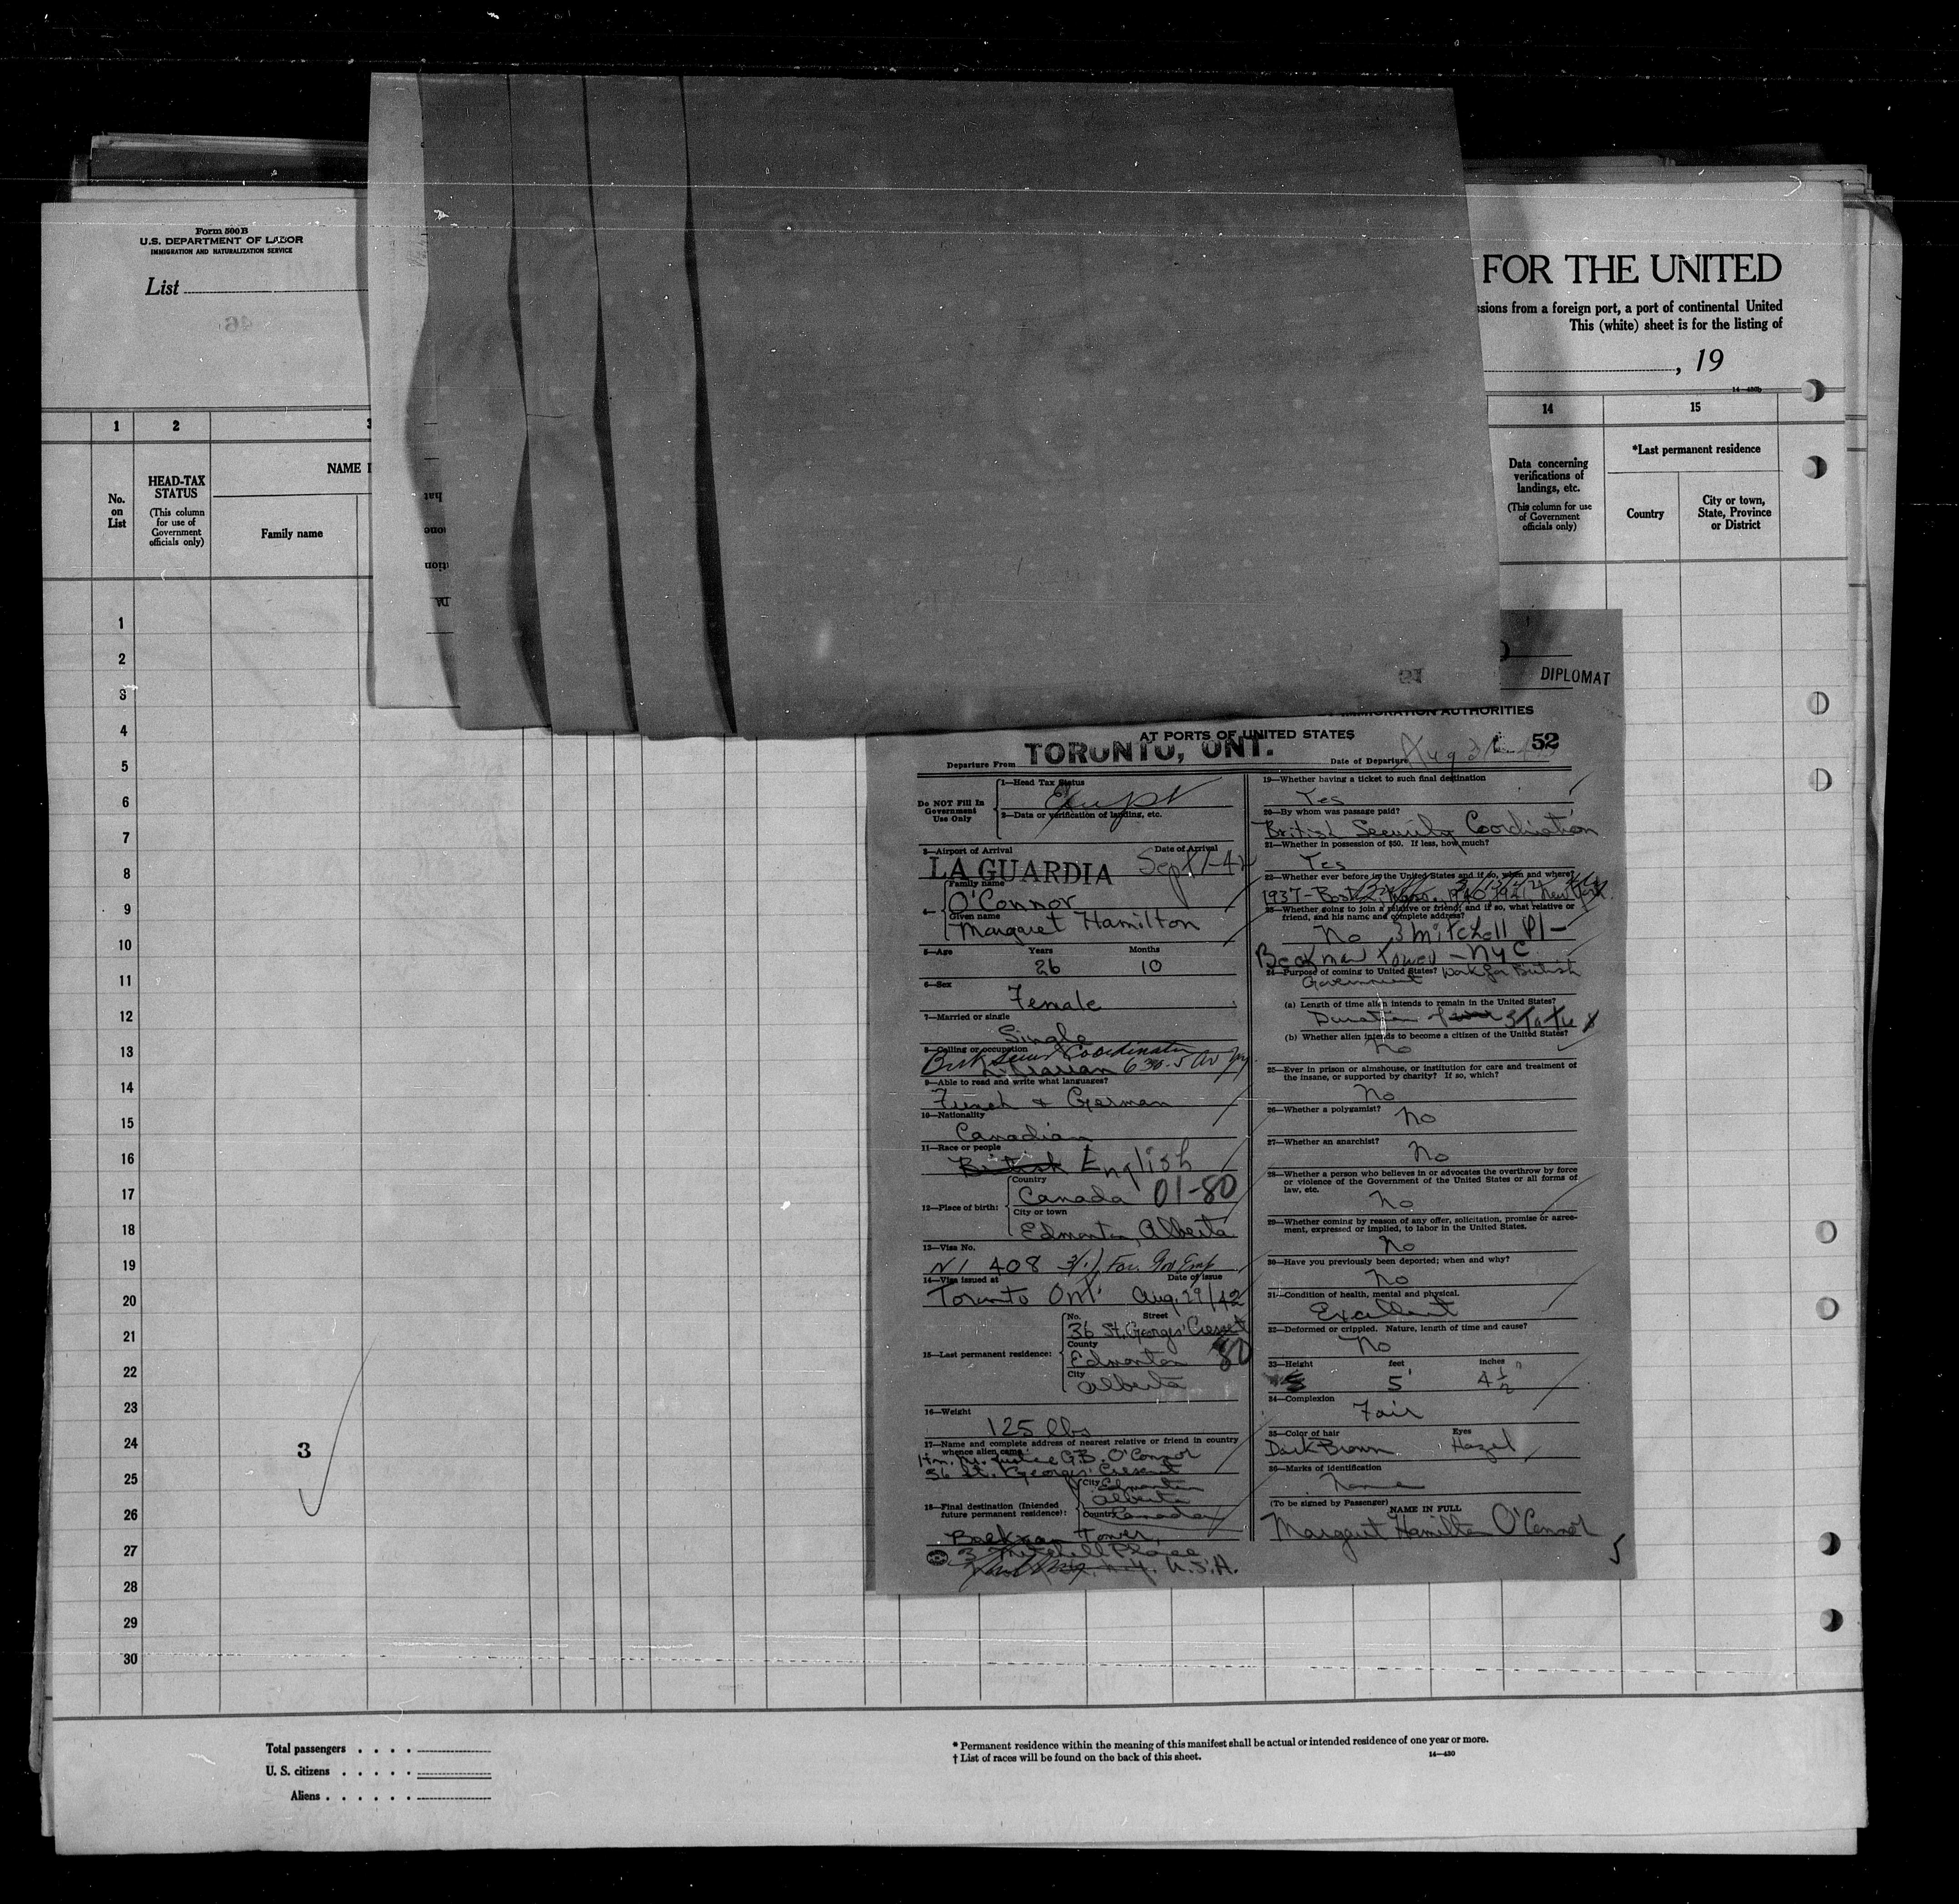 Form 500B
U.S. DEPARTMENT OF LABOR
IMMIGRATION AND NATURALIZATION SERVICE
List
FOR THE UNITED
ssions from a foreign port, a port of continental United
This (white) sheet is for the listing of
, 19
14—430b
1
2
3
14
15
No. on List
HEAD-TAX STATUS
(This column for use of Government officials only)
NAME I
Family name
Data concerning verifications of landings, etc.
(This column for use of Government officials only)
*Last permanent residence
Country
City or town, State, Province or District
1
2
3
4
5
6
7
8
9
10
11
12
13
14
15
16
17
18
19
20
21
22
23
24
25
26
27
28
29
30
3
DIPLOMAT
IMMIGRATION AUTHORITIES
AT PORTS OF UNITED STATES
52
Departure From TORONTO, ONT.
Date of Departure Aug 31
Do NOT Fill In Government Use Only
1—Head Tax Status
Exempt
2—Data or verification of landing, etc.
3—Airport of Arrival
Date of Arrival
LA GUARDIA Sept 1-42
4—
Family name
O'Connor
Given name
Margaret Hamilton
5—Age
Years
Months
26 10
6—Sex
Female
7—Married or single
Single
8—Calling or occupation
Coordination
Librarian 630-5 Av
9—Able to read and write what languages?
French & German
10—Nationality
Canadian
11—Race or people
British English
12—Place of birth:
Country
Canada 01-80
City or town
Edmonton, Alberta
13—Visa No.
N1 408 3(1) For. Gov Emp
14—Visa issued at
Date of issue
Toronto Ont. Aug. 29/42
15—Last permanent residence:
No.
Street
36 St. Georges' Crescent
County
Edmonton 80
City
Alberta
16—Weight
125 lbs
17—Name and complete address of nearest relative or friend in country whence alien came
Hon. Mr. Justice G.B. O'Connor
36 St. Georges' Crescent
City Edmonton
Alberta
Country Canada
18—Final destination (Intended future permanent residence):
Beekman Tower,
3 Mitchell Place
N.Y. U.S.A.
19—Whether having a ticket to such final destination
Yes
20—By whom was passage paid?
British Security Coordination
21—Whether in possession of $50. If less, how much?
Yes
22—Whether ever before in the United States and if so, when and where?
1937- Boston, Mass. 1940-1941 New York
23—Whether going to join a relative or friend; and if so, what relative or friend, and his name and complete address?
No 3 Mitchell Pl-
Beekman Tower - NYC
24—Purpose of coming to United States? Work for British
Government
(a) Length of time alien intends to remain in the United States?
Duration of war Status
(b) Whether alien intends to become a citizen of the United States?
No
25—Ever in prison or almshouse, or institution for care and treatment of the insane, or supported by charity? If so, which?
No
26—Whether a polygamist?
No
27—Whether an anarchist?
No
28—Whether a person who believes in or advocates the overthrow by force or violence of the Government of the United States or all forms of law, etc.
No
29—Whether coming by reason of any offer, solicitation, promise or agreement, expressed or implied, to labor in the United States.
No
30—Have you previously been deported; when and why?
No
31—Condition of health, mental and physical.
Excellent
32—Deformed or crippled. Nature, length of time and cause?
No
33—Height
feet
inches
5' 4½"
34—Complexion
Fair
35—Color of hair
Eyes
Dark Brown Hazel
36—Marks of identification
None
(To be signed by Passenger)
NAME IN FULL
Margaret Hamilton O'Connor
5
Total passengers . . . .
U. S. citizens . . . . .
Aliens . . . . . .
* Permanent residence within the meaning of this manifest shall be actual or intended residence of one year or more.
† List of races will be found on the back of this sheet.
14—430